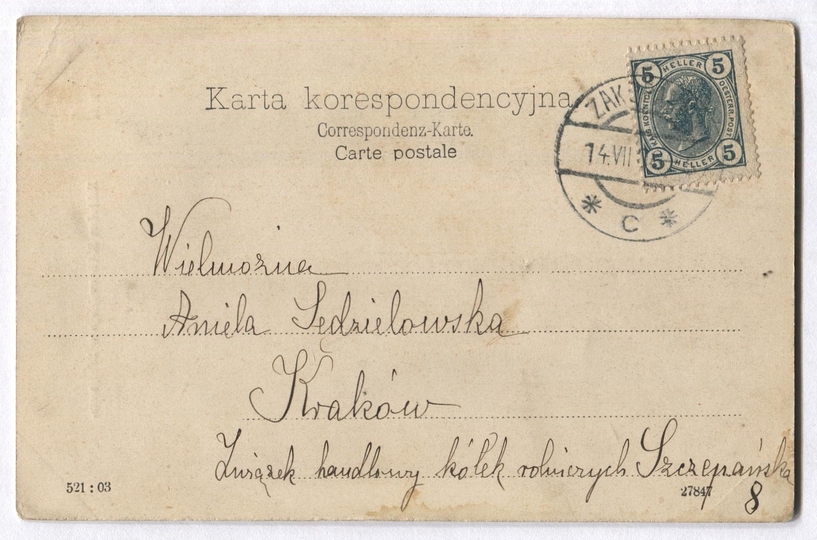 Karta korespondencyjna
Correspondenz-Karte.
Carte postale
5 HELLER 5
KAIS. KOENIGL. OESTERR. POST
5 HELLER 5
ZAK
14.VII
* C *
Wielmożna
Aniela Sędzielowska
Kraków
Związek handlowy kółek rolniczych Szczepańska
8
521 : 03
27847